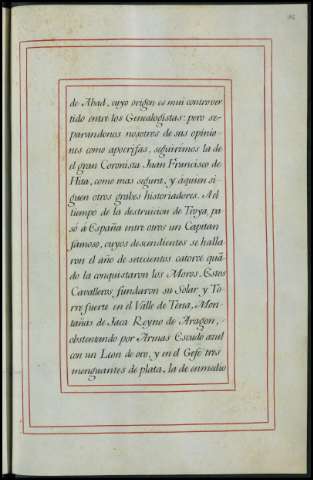 de Abad, cuyo origen es mui controver
tido entre los Genealogistas: pero se-
parandonos nosotros de sus opinio-
nes como apocrifas, seguirémos la de
el gran Coronista Juan Francisco de
Hita, como mas segura, y áquien si-
guen otros grabes historiadores. Al
tiempo de la destruicion de Troya, pa
só á España entre otros un Capitan
famoso, cuyos descendientes se halla
ron el año de setecientos catorce quã-
do la conquistaron los Moros. Estos
Cavalleros fundaron su Solar, y To-
rre fuerte en el Valle de Tena, Mon-
tañas de Jaca Reyno de Aragon,
obstentando por Armas Escudo azul
con un Leon de oro, y en el Gefe tres
menguantes de plata, la de enmedio